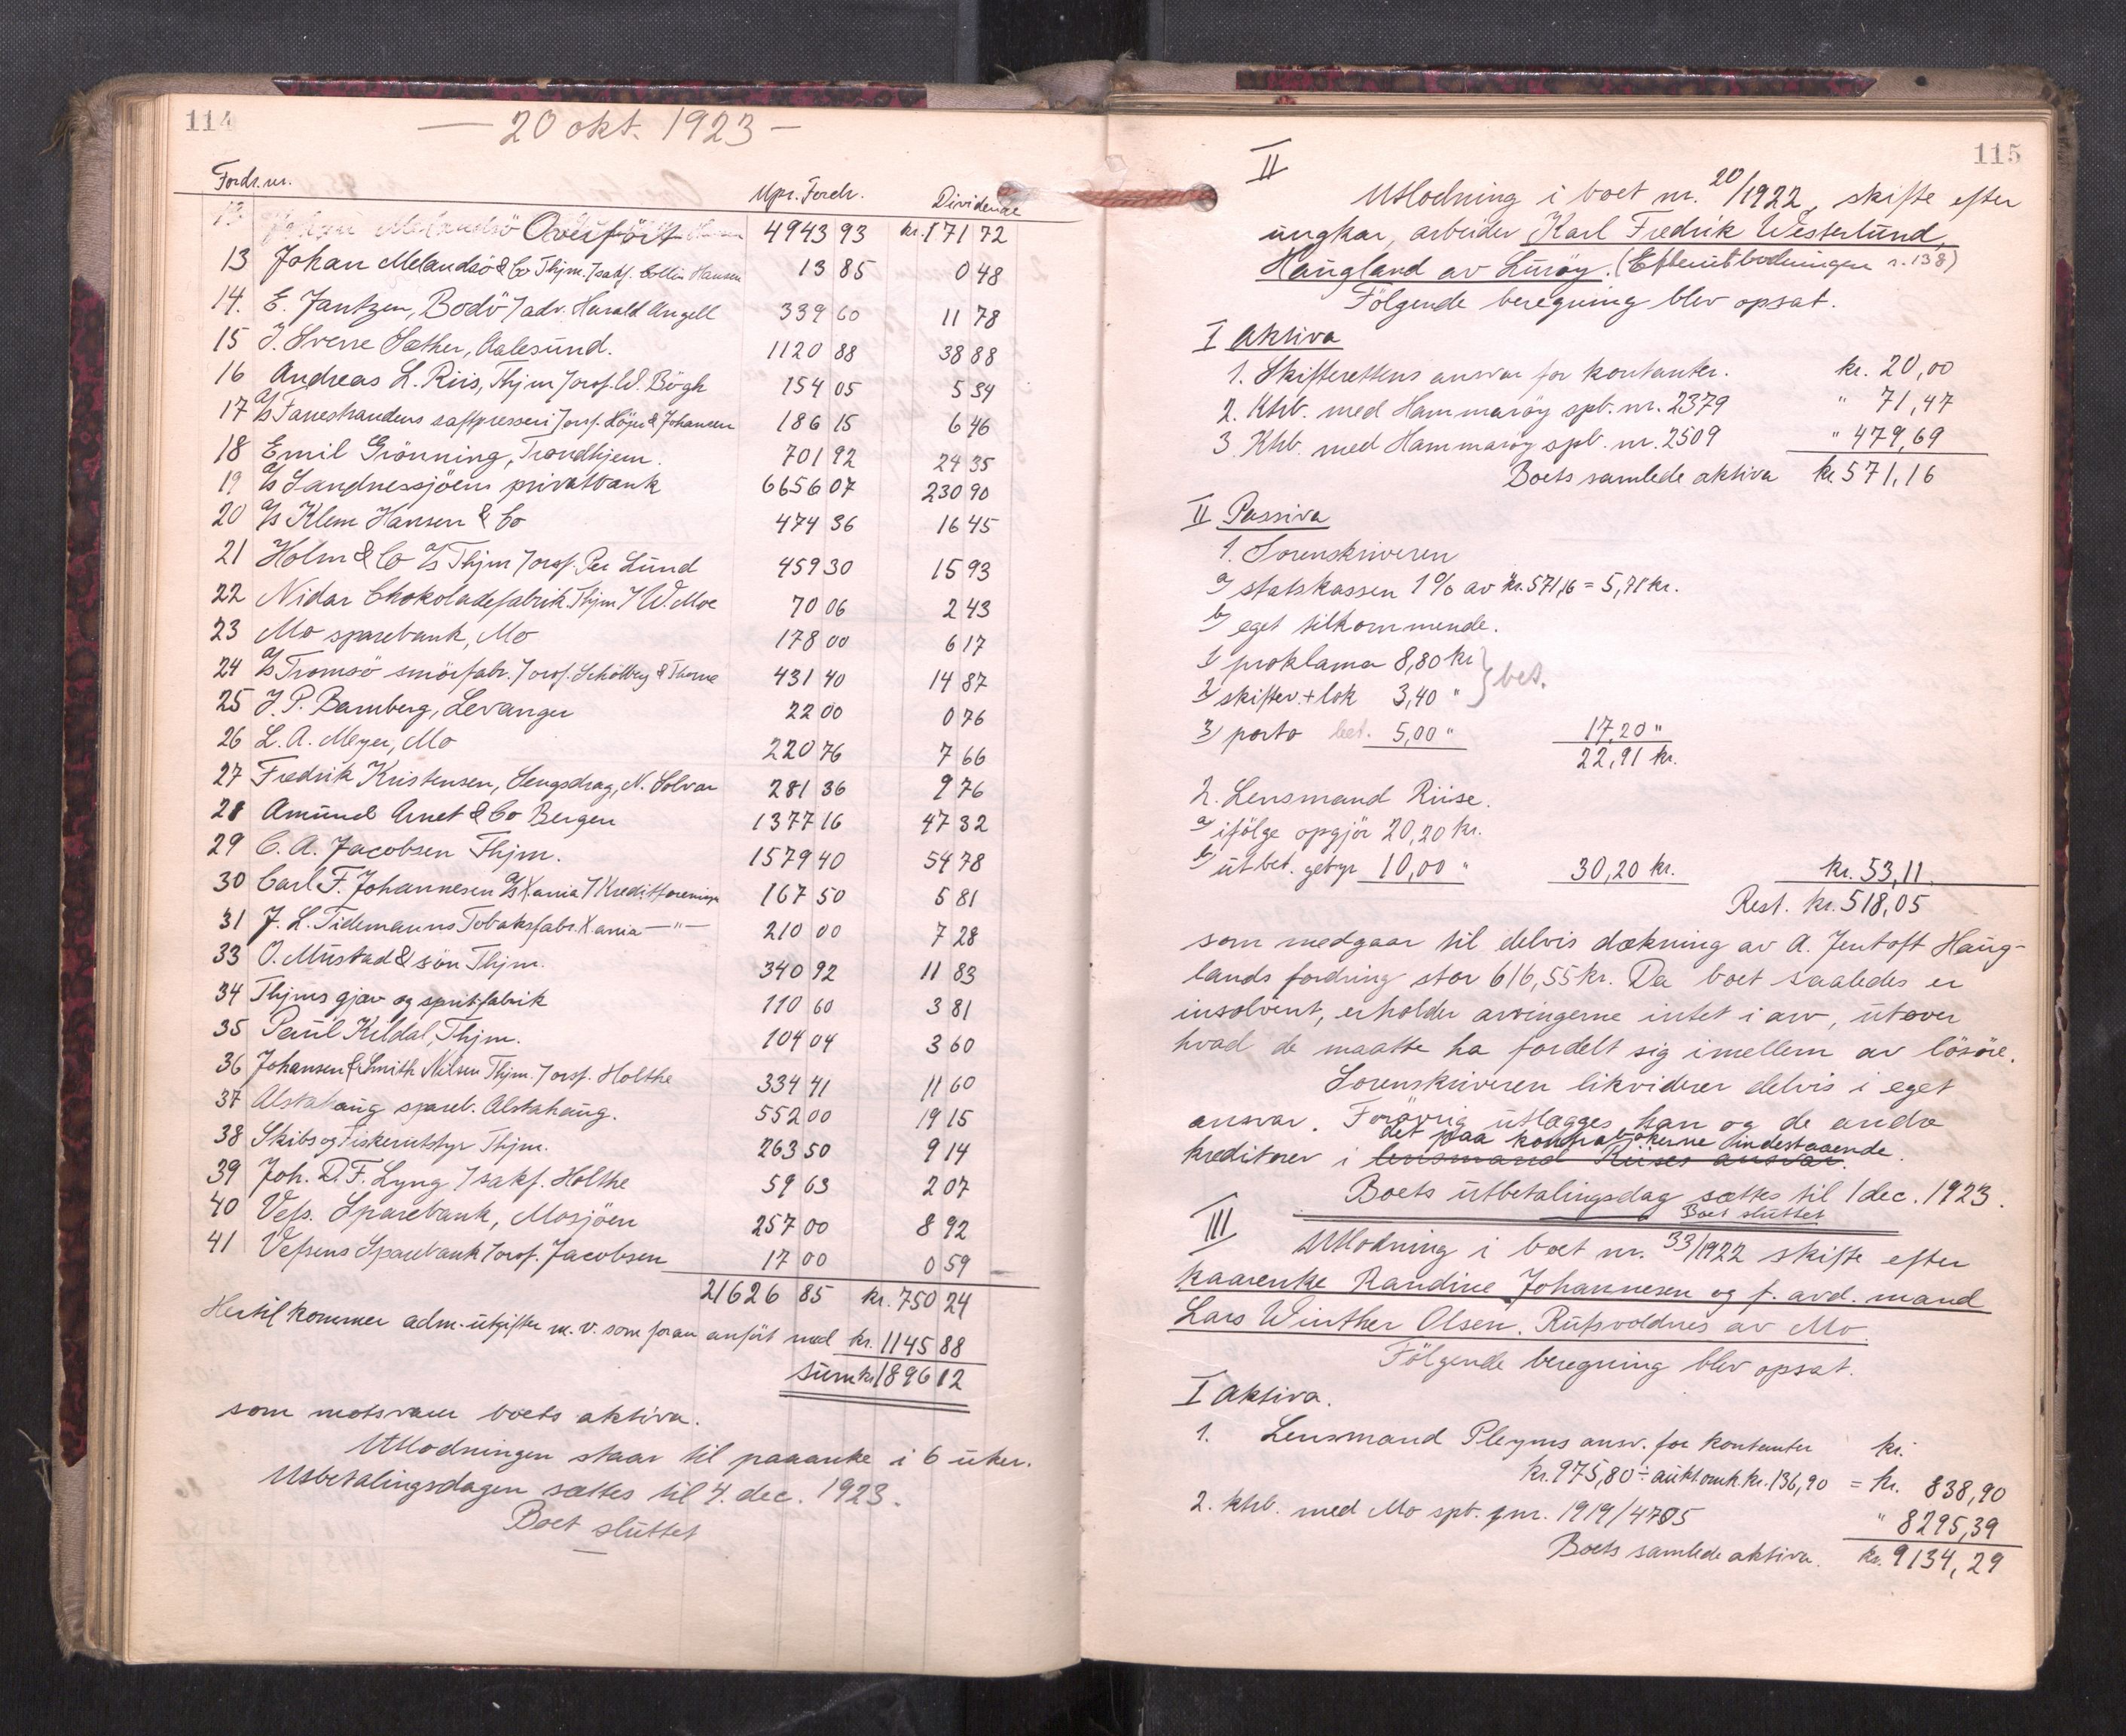 114
— 20 okt. 1923 —
Fordr. nr. Opr. Fordr. Dividende
13 Johan Melandsö Overfört 4943 93 kr. 171 72
13 Johan Melandsö & Co Thjm. / sakf. Collin Hansen 13 85 0 48
14. E. Jantzen, Bodö / adv. Harald Angell 339 60 11 78
15 J. Sverre Sæther, Aalesund. 1120 88 38 88
16 Andreas L. Riis, Thjm / orsf. W. Bögh 154 05 5 34
17 A/S Fanestrandens saftpresseri / orsf. Höyer & Johansen 186 15 6 46
18 Emil Grönning, Trondhjem. 701 92 24 35
19 A/S Sandnessjöens privatbank 6656 07 230 90
20 A/S Klem Hansen & Co 474 36 16 45
21 Holm & Co A/S Thjm / orsf. Per Lund 459 30 15 93
22 Nidar Chokoladefabrik Thjm / W. Moe 70 06 2 43
23 Mo sparebank, Mo 178 00 6 17
24 A/S Tromsö smörfabr. / orsf. Schölberg & Thorne 431 40 14 87
25 J. P. Bamberg, Levanger 22 00 0 76
26 L. A. Meyer, Mo 220 76 7 66
27 Fredrik Kristensen, Sengsdrag, N. Solvær 281 36 9 76
28 Amund Arnet & Co Bergen 1377 16 47 32
29 C. A. Jacobsen Thjm. 1579 40 54 78
30 Carl F. Johannesen A/S X.ania / Kreditforeningen 167 50 5 81
31 J. L. Tidemanns Tobaksfabr. X.ania —"— 210 00 7 28
33 O. Mustad & sön Thjm. 340 92 11 83
34 Thjms gjær og spritfabrik 110 60 3 81
35 Paul Kildal, Thjm. 104 04 3 60
36 Johansen & Smith Nilsen Thjm. / orsf. Holthe 334 41 11 60
37 Alstahaug spareb. Alstahaug. 552 00 19 15
38 Skibs og Fiskeriutstyr Thjm. 263 50 9 14
39 Joh. D. F. Lyng / sakf. Holthe 59 63 2 07
40 Vefs. Sparebank, Mosjöen 257 00 8 92
41 Vefsens Sparebank / orsf. Jacobsen 17 00 0 59
21626 85 kr. 750 24
Hertil kommer adm. utgifter m. v. som foran anfört med kr. 1145 88
Sum kr 1896 12
som motsvarer boets aktiva.
Utlodningen staar til paaanke i 6 uker.
Utbetalingsdagen sættes til 4. dec. 1923.
Boet sluttet
115
II
Utlodning i boet nr. 20/1922, skifte efter
ungkar, arbeider Karl Fredrik Westerlund,
Haugland av Luröy. (Efterutlodningen s. 138)
Fölgende beregning blev opsat.
I Aktiva
1. Skifterettens ansvar for kontanter. kr. 20,00
2. Ktrb. med Hammaröy spb. nr. 2379 " 71,47
3. Ktrb. med Hammaröy spb. nr. 2509 " 479,69
Boets samlede aktiva kr 571,16
II Passiva
1. Sorenskriveren
a) statskassen 1% av kr. 571,16 = 5,71 kr.
b) eget tilkommende.
1) proklama 8,80 kr } bet.
2) skifterv. + lok 3,40 "
3) porto bet. 5,00 " 17,20 "
22,91 kr.
2. Lensmand Riise.
a) ifölge opgjör 20,20 kr.
b) utbet. gebyr 10,00 " 30,20 kr. kr. 53,11
Rest. kr. 518,05
som medgaar til delvis dækning av A. Jentoft Haug-
lands fordring stor 616,55 kr. Da boet saaledes er
insolvent, erholder arvingerne intet i arv, utover
hvad de maatte ha fordelt sig imellem av lösöre.
Sorenskriveren likviderer delvis i eget
ansvar. Forövrig utlægges han og de andre
det paa kontrabökerne indestaaende
kreditorer i lensmand Riises ansvar.
Boets utbetalingsdag sættes til 1 dec. 1923.
Boet sluttet
III
Utlodning i boet nr. 33/1922 skifte efter
kaarenke Randine Johannesen og f. avd. mand
Lars Winther Olsen, Rufsvoldnes av Mo.
Fölgende beregning blev opsat.
I Aktiva.
1. Lensmand Pleyms ansv. for kontanter kr.
kr. 975,80 ÷ aukt. omk. kr. 136,90 = kr. 838,90
2. ktrb. med Mo spb. nr. 1919/4705 " 8295,39
Boets samlede aktiva. kr. 9134,29